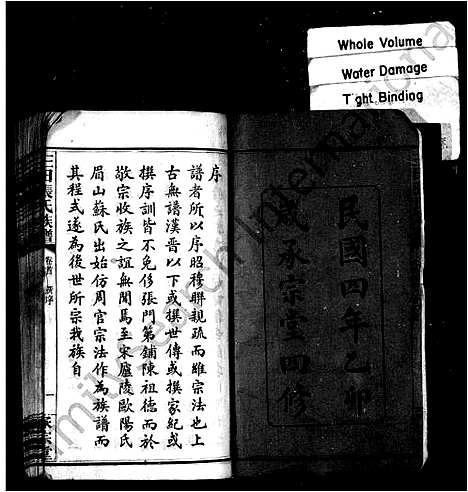 Whole Volume
Water Damage
Tight Binding
民國四年乙卯
承宗堂四修
序
譜者所以序昭穆聯親疏而維宗法也上
古無譜漢晋以下或撰世傳或撰家紀或
撰序訓皆不免侈張門第鋪陳祖德而於
敬宗收族之誼無聞焉至宋廬陵歐陽氏
眉山蘇氏出始仿周官宗法作為族譜而
其程式遂為後世所宗我族自
張氏族譜
卷首
一